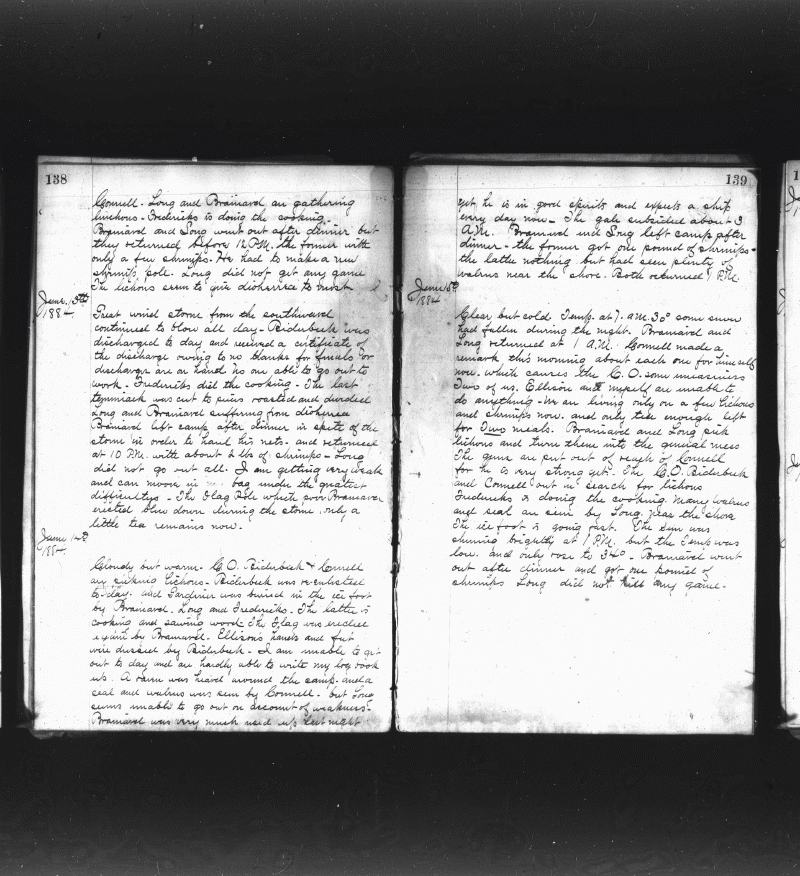 138
Connell. Long and Brainard are gathering
lichous. Fredericks is doing the cooking.
Brainard and Long went out after dinner but
they returned before 12 P.M. the former with
only a few shrimps. He had to make a new
shrimps pole. Long did not get any game
The lichous seem to give dioherrea to most
June. 13th
1884.
Great wind storm from the southward
continued to blow all day - Biderbeck was
discharged to day and received a certificate of
the discharge owing to no blanks for finals or
discharges are on hand. no one able to go out to
work. Fredericks did the cooking - The last
temniack was cut to pieces roasted and divided
Long and Brainard suffering from dioherrea
Brainard left camp after dinner in spite of the
storm in order to haul his nets - and returned
at 10 P.M. with about 2 lbs of shrimps - Long
did not go out all. I am getting very weak
and can moove in bag under the greatest
difficultys - The Flag Pole which poor Brainard
erected blew down during the storm. only a
little tea remains now.
June 14th
1884.
Cloudy but warm. C.O. Biderbeck & Connell
are picking lichous. Biderbeck was re-enlisted
to day. and Gardiner was buried in the ice foot
by Brainard. Long and Fredericks. The latter is
cooking and sawing wood. The Flag was erected
again by Brainard. Ellison's hands and feet
were dressed by Biderbeck. I am unable to get
out to day and am hardly able to write my log book
up. A raven was heard around the camp. and a
seal and walrus was seen by Connell. but Long
seems unable to go out on account of weakness.
Brainard was very much used up last night
139
yet he is in good spirits and expects a ship
every day now - The gale subsided about 3
A.M. Brainard and Long left camp after
dinner - the former got one pound of shrimps -
the latter nothing but had seen plenty of
walrus near the shore. Both returned 1 P.M.
June 15th
1884
Clear but cold Temp. at 7. A.M. 30° some snow
had fallen during the night. Brainard and
Long returned at 1 A.M. Connell made a
remark this morning about each one for himself
now. which causes the C.O. some uneasiness
Two of us. Ellison and myself are unable to
do anything. We are living only on a few lichous
and shrimps now. and only tea enough left
for Two meals. Brainard and Long pick
lichous and turn them into the general mess
The guns are put out of reach of Connell
for he is very strong yet. The C.O. Biderbeck
and Connell out in search for lichous
Fredericks is doing the cooking. Many walrus
and seal are seen by Long near the shore
The ice foot is going fast. The sun was
shining brightly at 1 P.M. but the Temp was
low. and only rose to 34° - Brainard went
out after dinner and got one pound of
shrimps Long did not kill any game.